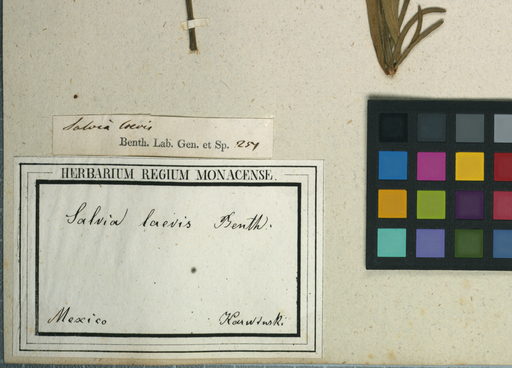 Salvia laevis
Benth. Lab. Gen. et Sp. 254
HERBARIUM REGIUM MONACENSE.
Salvia laevis Benth.
Mexico Karwinski.